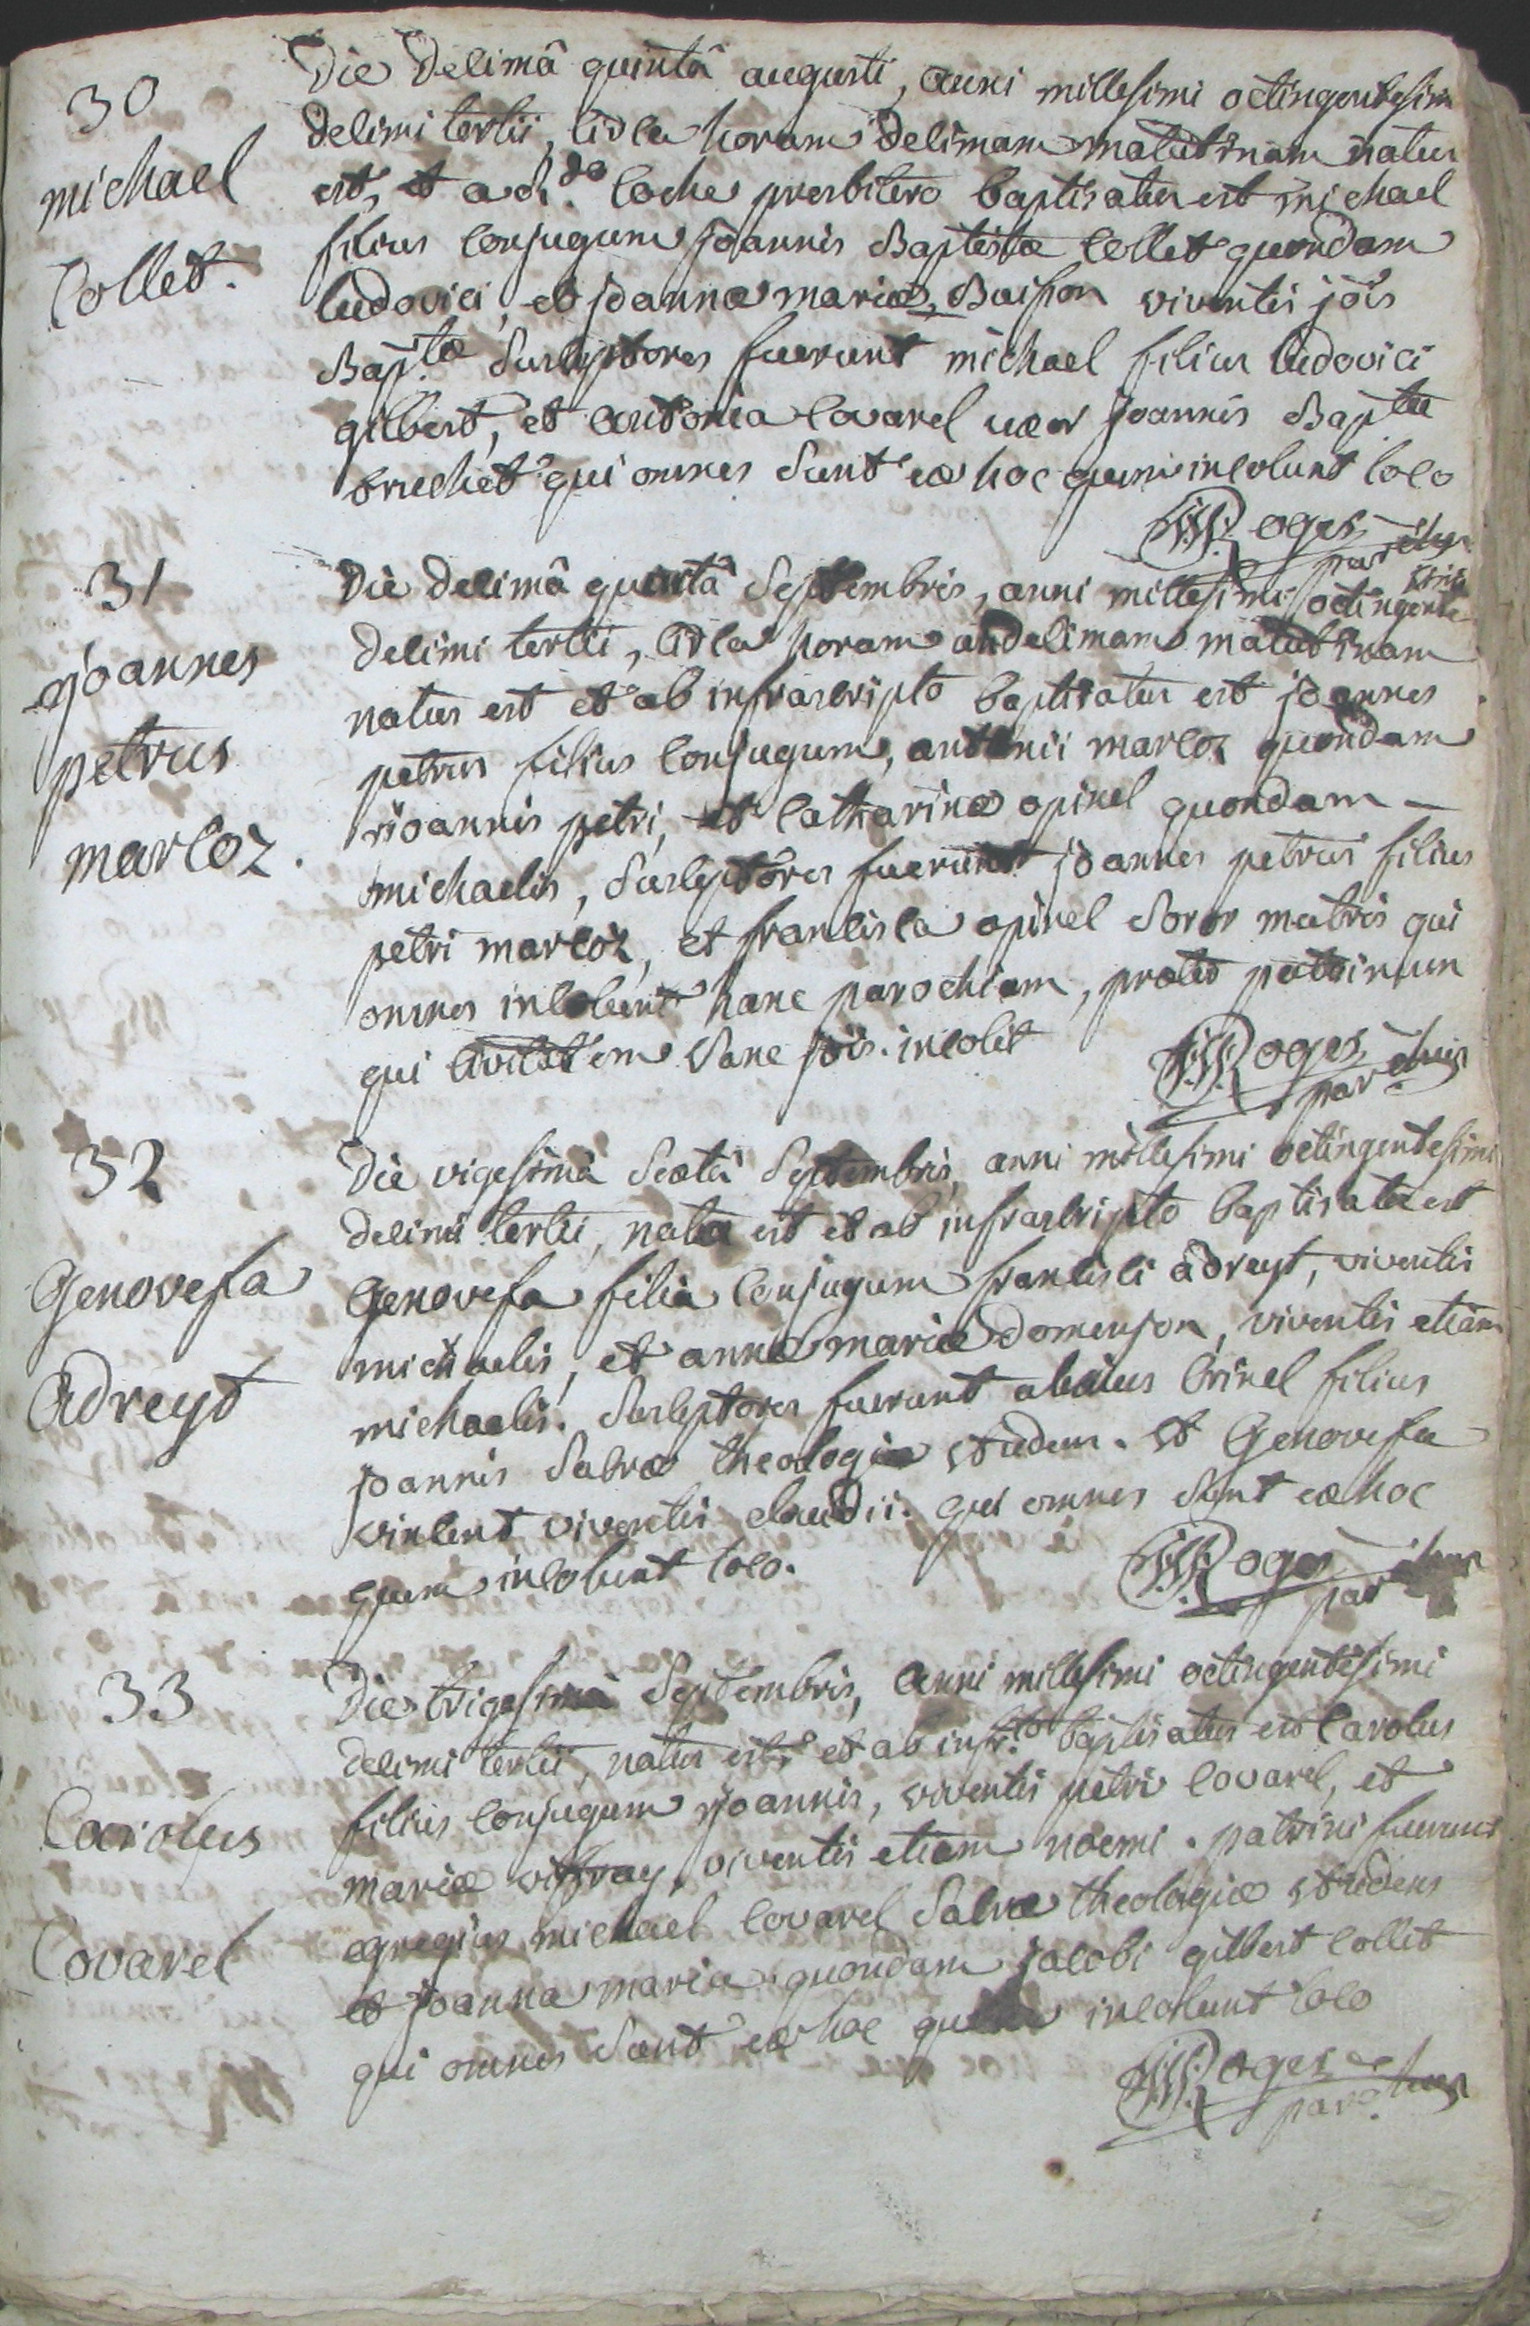 30
michael
Collet.
Die decimâ quintâ augusti, anni millesimi octingentesimi
decimi tertii, circa horam decimam matutinam natus
est, et a R.do coche presbitero baptisatus est michael
filius conjugum joannis Baptistæ Collet quondam
ludovici, et joannæ mariæ, Buisson viventis jôis
Bap.tæ Susceptores fuerunt michael filius ludovici
gilbert, et antonia covarel uxor joannis Baptæ
bruchet qui omnes sunt ex hoc quem incolunt loco
Roges
parchus
31
joannes
petrus
marcoz.
Die decimâ quintâ Septembris, anni millesimi octingentesimi
decimi tertii, circa horam undecimam matutinam
natus est et ab infrascripto baptisatus est joannes
petrus filius conjugum, antonii marcoz quondam
joannis petri, et catharinæ opinel quondam
michaelis, Susceptores fuerunt joannes petrus filius
petri marcoz, et francisca opinel soror matris qui
omnes incolunt hanc parochiam, præter patrinum
qui civitatem Sanc jôis. incolit
Roges
parchus
32
Genovefa
Adreyt
Die vigesimâ Sextâ Septembris, anni millesimi octingentesimi
decimi tertii, nata est et ab infrascripto baptisata est
Genovefa filia conjugum francisci adreyt, viventis
michaelis, et annæ mariæ domenjon, viventis etiam
michaelis. Susceptores fuerunt alexius brinel filius
joannis Sacræ theologiæ studens. et Genovefa
vincent viventis claudii. qui omnes sunt ex hoc
quem incolunt loco.
Roges
parchus
33
Carolus
Covarel
Die trigesimâ Septembris, anni millesimi octingentesimi
decimi tertii, natus est, et ab infr.to baptisatus est Carolus
filius conjugum joannis, viventis petri covarel, et
mariæ viffray, viventis etiam noemi. patrini fuerunt
egregius michael covarel Sacræ theologiæ studens
et joanna maria quondam jacobi gilbert collet
qui omnes sunt ex hoc quem incolunt loco
Roges
parchus